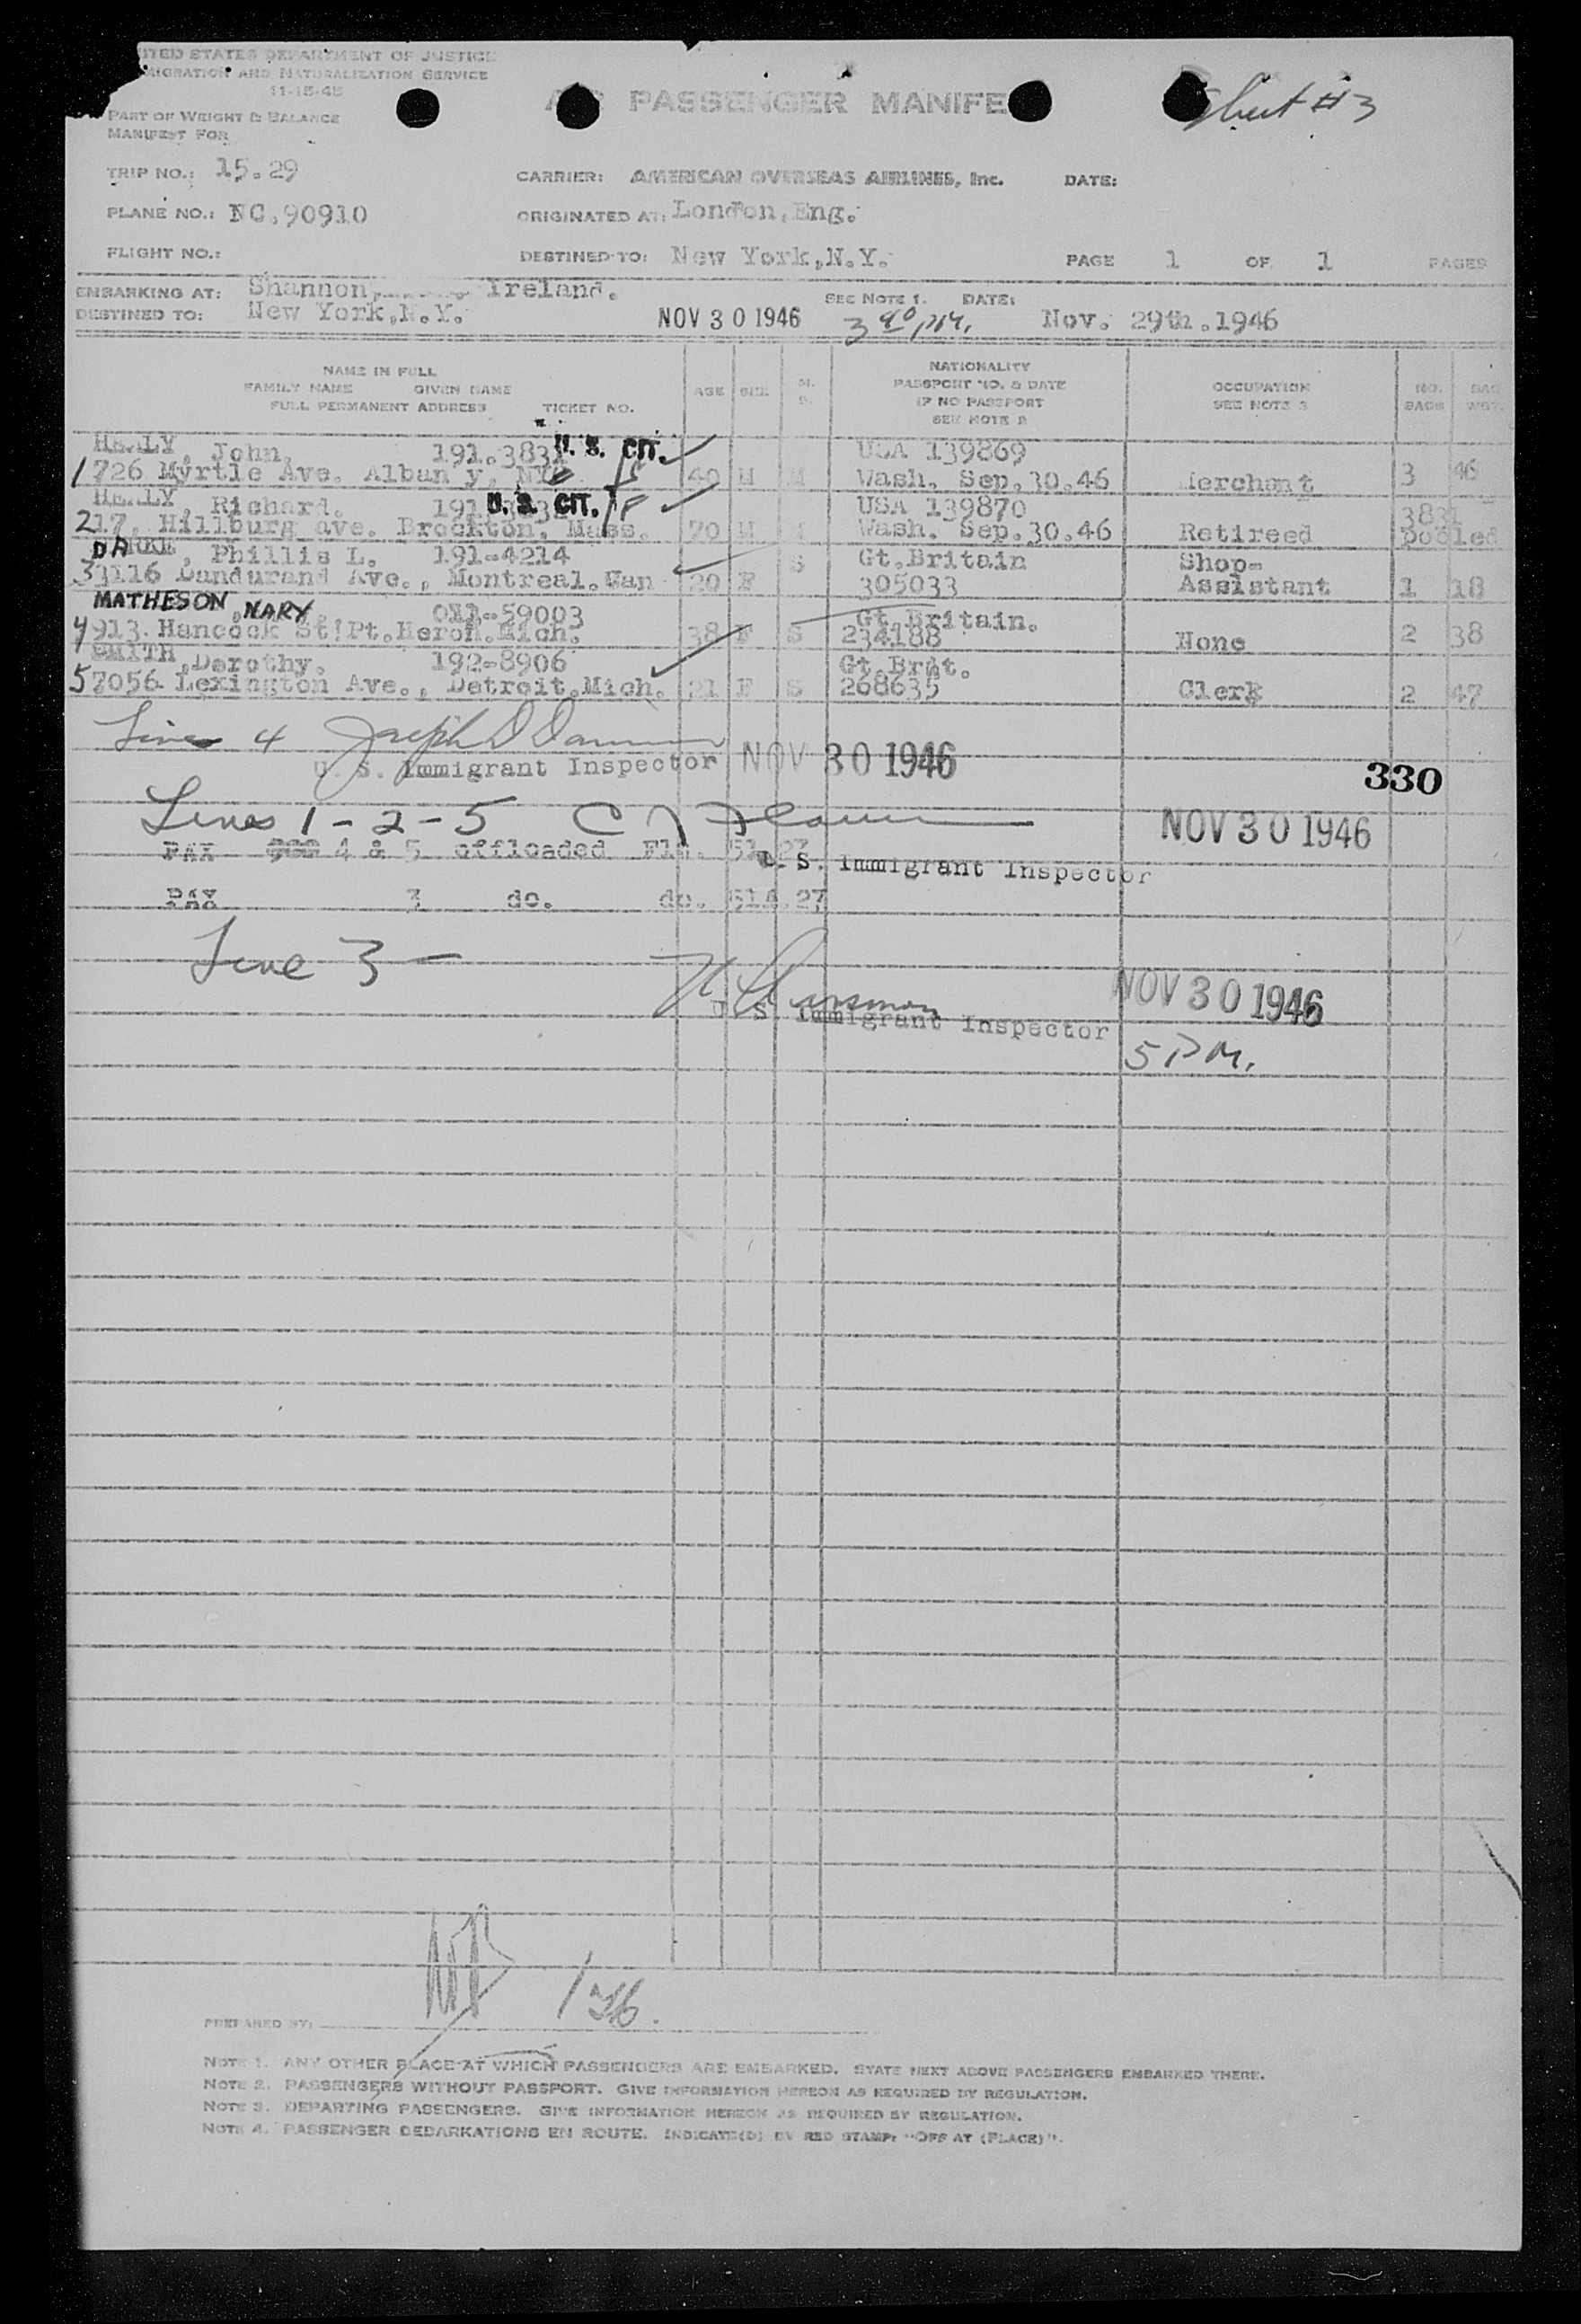 ITED STATES DEPARTMENT OF JUSTICE
MIGRATION AND NATURALIZATION SERVICE
11-15-45
AIR PASSENGER MANIFE
Sheet #3
PART OF WEIGHT & BALANCE
MANIFEST FOR
TRIP NO.: 15.29 CARRIER: AMERICAN OVERSEAS AIRLINES, Inc. DATE:
PLANE NO.: NC.90910 ORIGINATED AT: London, Eng.
FLIGHT NO.: DESTINED TO: New York, N.Y. PAGE 1 OF 1 PAGES
EMBARKING AT: Shannon, Ireland. SEE NOTE 1. DATE:
DESTINED TO: New York, N.Y. NOV 30 1946 3 40 PM. Nov. 29th. 1946
NAME IN FULL
FAMILY NAME GIVEN NAME
FULL PERMANENT ADDRESS TICKET NO.
AGE SEX M. S.
NATIONALITY
PASSPORT NO. & DATE
IF NO PASSPORT
SEE NOTE 2
OCCUPATION
SEE NOTE 3
NO. BAGS BAG WGT.
HEALY, John. 191.3831 U. S. CIT. USA 139869
1 726 Myrtle Ave. Alban y, NY 40 M M Wash. Sep.30.46 Merchant 3 46
HEALY, Richard. 191 U. S. CIT. USA 139870 3831
2 17. Hillburg ave. Brockton, Mass. 70 M M Wash. Sep.30.46 Retireed pooled
, Phillis L. 191-4214 S Gt.Britain Shop-
3 3116 Dandurand Ave., Montreal.Can 20 F 305033 Assistant 1 18
MATHESON, MARY -59003 Gt.Britain.
4 913. Hancock St! Pt.Heron.Mich. 38 F S 234188 None 2 38
SMITH, Dorothy. 192-8906 Gt.Brit.
5 7056 Lexington Ave., Detroit.Mich. 21 F S 268635 Clerk 2 47
Line 4 Joseph D
U. S. Immigrant Inspector NOV 30 1946
330
Lines 1 - 2 - 5
NOV 30 1946
PAX 4 & 5 offloaded Flt.
U. S. Immigrant Inspector
PAX 3 do. do. 51A.27
Line 3 -
U. S. Immigrant Inspector
NOV 30 1946
5 PM.
PREPARED BY:
NOTE 1. ANY OTHER PLACE AT WHICH PASSENGERS ARE EMBARKED. STATE NEXT ABOVE PASSENGERS EMBARKED THERE.
NOTE 2. PASSENGERS WITHOUT PASSPORT. GIVE INFORMATION HEREON AS REQUIRED BY REGULATION.
NOTE 3. DEPARTING PASSENGERS. GIVE INFORMATION HEREON AS REQUIRED BY REGULATION.
NOTE 4. PASSENGER DEBARKATIONS EN ROUTE. INDICATE(D) BY RED STAMP: "OFF AT (PLACE)".